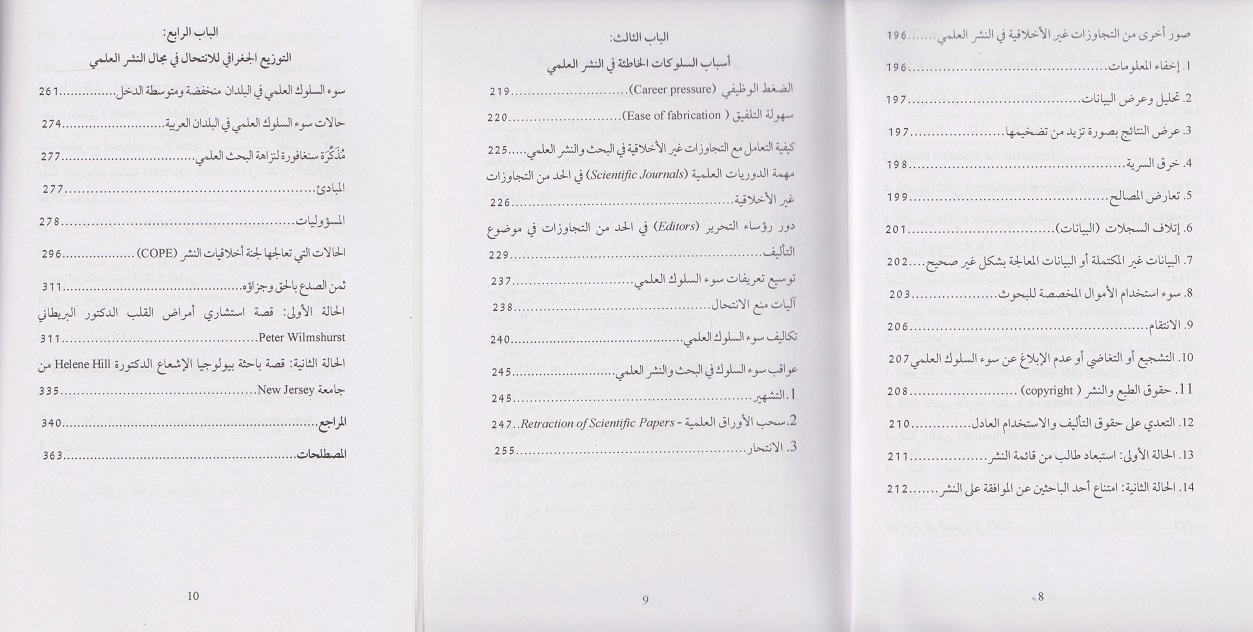 صور أخرى من التجاوزات غير الأخلاقية في النشر العلمي.......196
1. إخفاء المعلومات..........196
2. تحليل وعرض البيانات..........197
3. عرض النتائج بصورة تزيد من تضخيمها..........197
4. خرق السرية..........198
5. تعارض المصالح..........199
6. إتلاف السجلات (البيانات)..........201
7. البيانات غير المكتملة أو البيانات المعالجة بشكل غير صحيح....202
8. سوء استخدام الأموال المخصصة للبحوث..........203
9. الانتقام..........206
10. التشجيع أو التغاضي أو عدم الإبلاغ عن سوء السلوك العلمي 207
11. حقوق الطبع والنشر ( copyright)..........208
12. التعدي على حقوق التأليف والاستخدام العادل..........210
13. الحالة الأولى: استبعاد طالب من قائمة النشر..........211
14. الحالة الثانية: امتناع أحد الباحثين عن الموافقة على النشر.......212
8
الباب الثالث:
أسباب السلوكات الخاطئة في النشر العلمي
الضغط الوظيفي (Career pressure)..........219
سهولة التلفيق ( Ease of fabrication)..........220
كيفية التعامل مع التجاوزات غير الأخلاقية في البحث والنشر العلمي.....225
مهمة الدوريات العلمية (Scientific Journals) في الحد من التجاوزات
غير الأخلاقية..........226
دور رؤساء التحرير (Editors) في الحد من التجاوزات في موضوع
التأليف..........229
توسيع تعريفات سوء السلوك العلمي..........237
آليات منع الانتحال..........238
تكاليف سوء السلوك العلمي..........240
عواقب سوء السلوك في البحث والنشر العلمي..........245
1. التشهير..........245
2. سحب الأوراق العلمية - Retraction of Scientific Papers..247
3. الانتحار..........255
9
الباب الرابع:
التوزيع الجغرافي للانتحال في مجال النشر العلمي
سوء السلوك العلمي في البلدان منخفضة ومتوسطة الدخل..........261
حالات سوء السلوك العلمي في البلدان العربية..........274
مُذَكِّرَة سنغافورة لنزاهة البحث العلمي..........277
المبادئ..........277
المسؤوليات..........278
الحالات التي تعالجها لجنة أخلاقيات النشر (COPE)..........296
ثمن الصدع بالحق وجزاؤه..........311
الحالة الأولى: قصة استشاري أمراض القلب الدكتور البريطاني
Peter Wilmshurst..........311
الحالة الثانية: قصة باحثة بيولوجيا الإشعاع الدكتورة Helene Hill من
جامعة New Jersey..........335
المراجع..........340
المصطلحات..........363
10